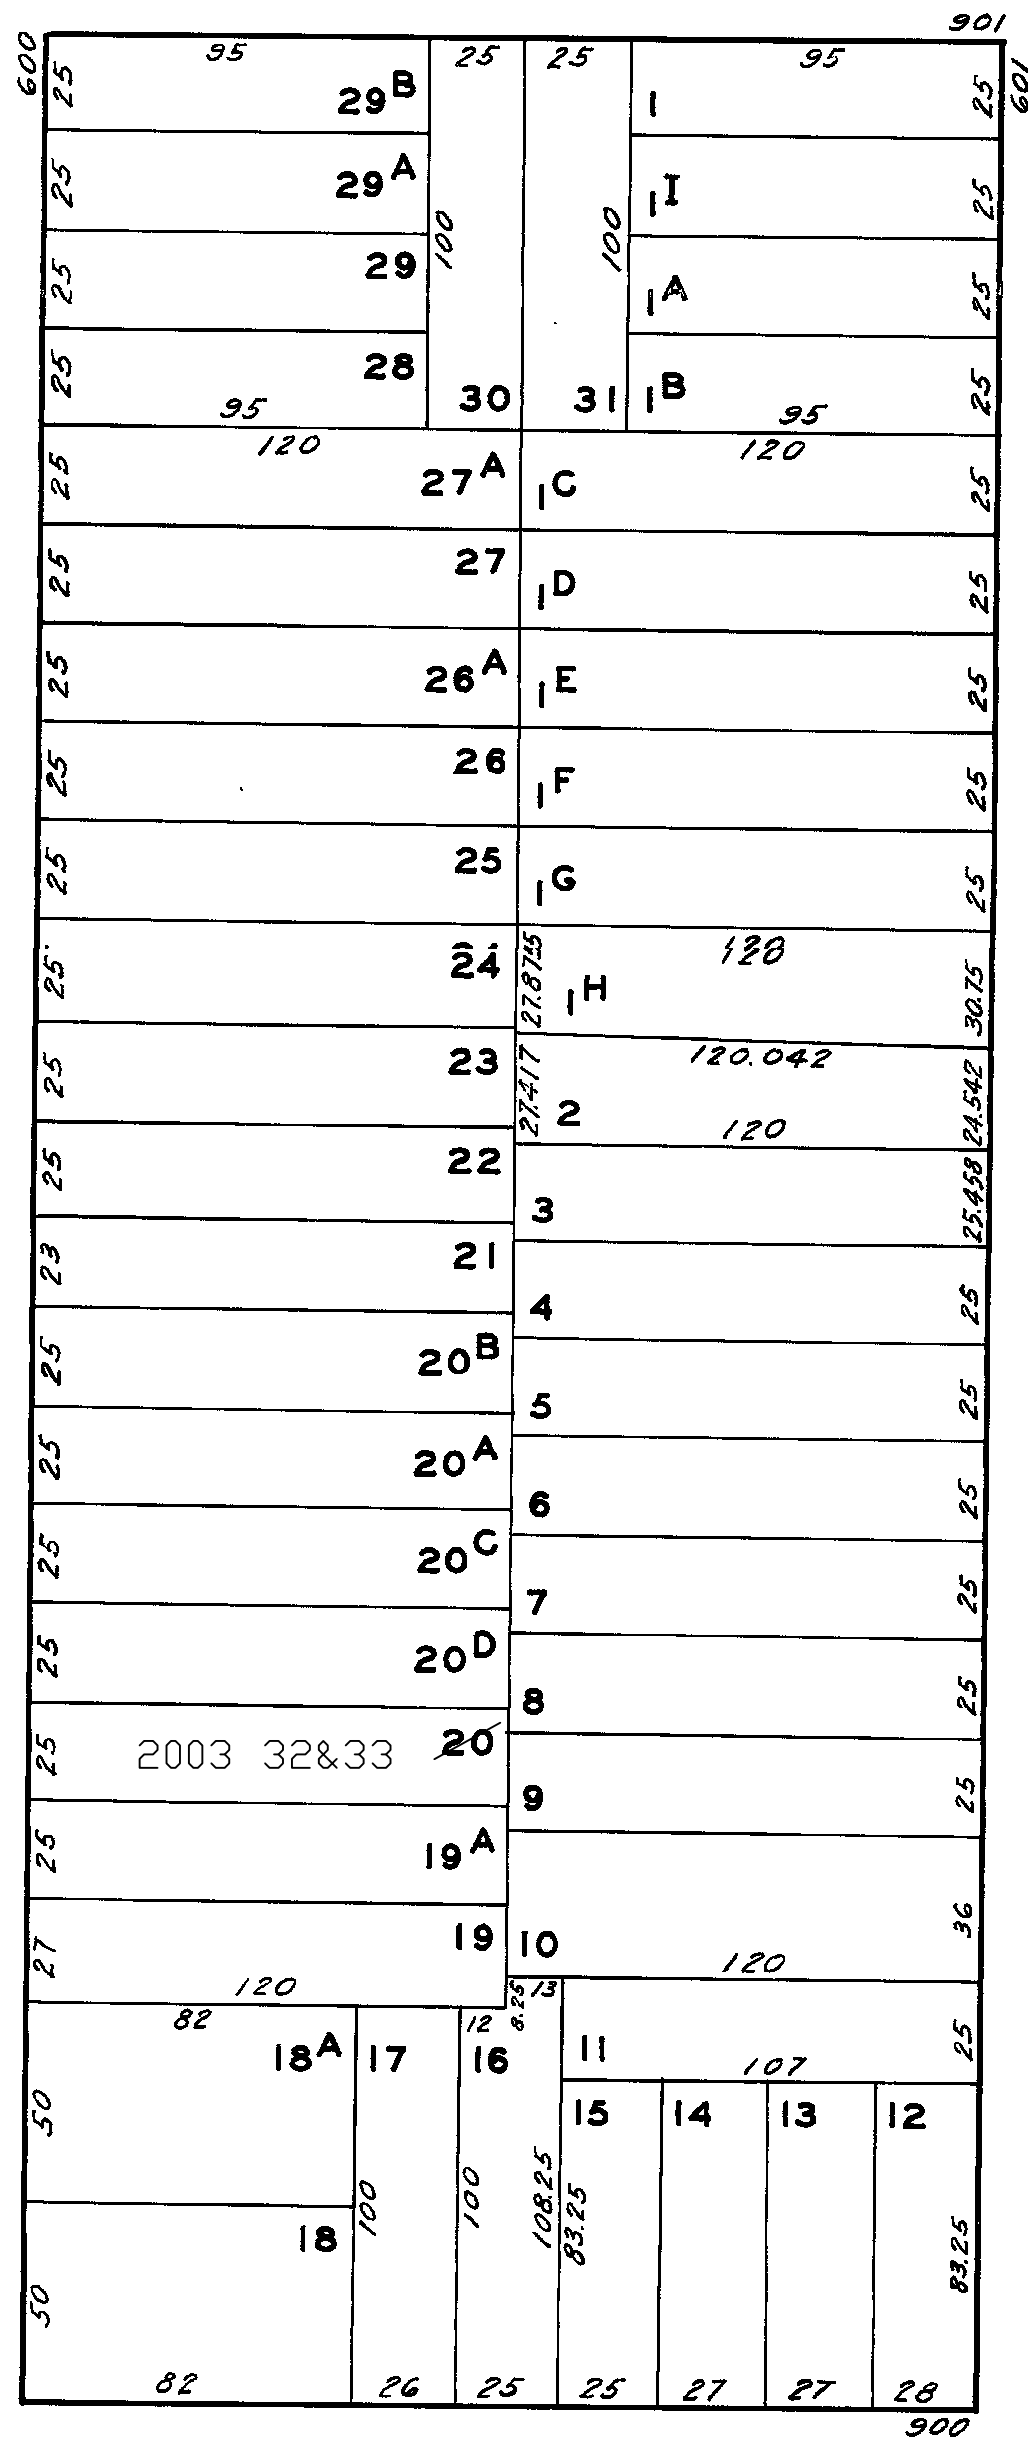 901
600 95 25 25 95 601
25 29B 1 25
25 29A 1I 25
100 100
25 29 1A 25
25 28 30 31 1B 25
95 95
120 120
25 27A 1C 25
25 27 1D 25
25 26A 1E 25
25 26 1F 25
25 25 1G 25
120
25 24 27.875 1H 30.75
120.042
25 23 27.417 2 24.542
120
25 22 3 25.458
23 21 4 25
25 20B 5 25
25 20A 6 25
25 20C 7 25
25 20D 8 25
25 2003 32&33 20 9 25
25 19A
27 19 10 36
120 120
82 12 8.25 13
18A 17 16 11 25
107
50 15 14 13 12
100 100 108.25 83.25 83.25
18
50
82 26 25 25 27 27 28
900